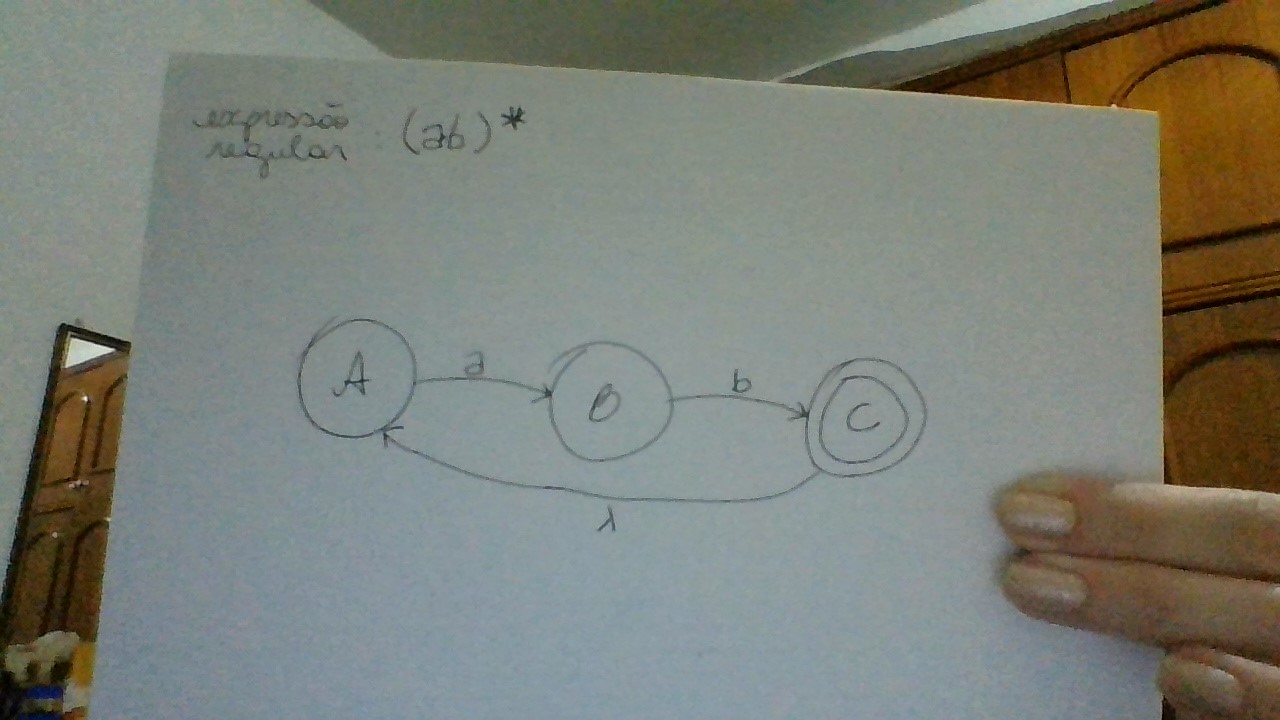 expressão
regular : (ab)*
a
b
A
B
C
λ